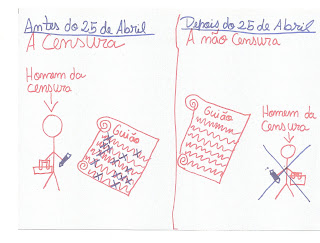 Antes do 25 de Abril
A Censura
Homem da
censura
Guião
Depois do 25 de Abril
A não Censura
Guião
Homem da
Censura